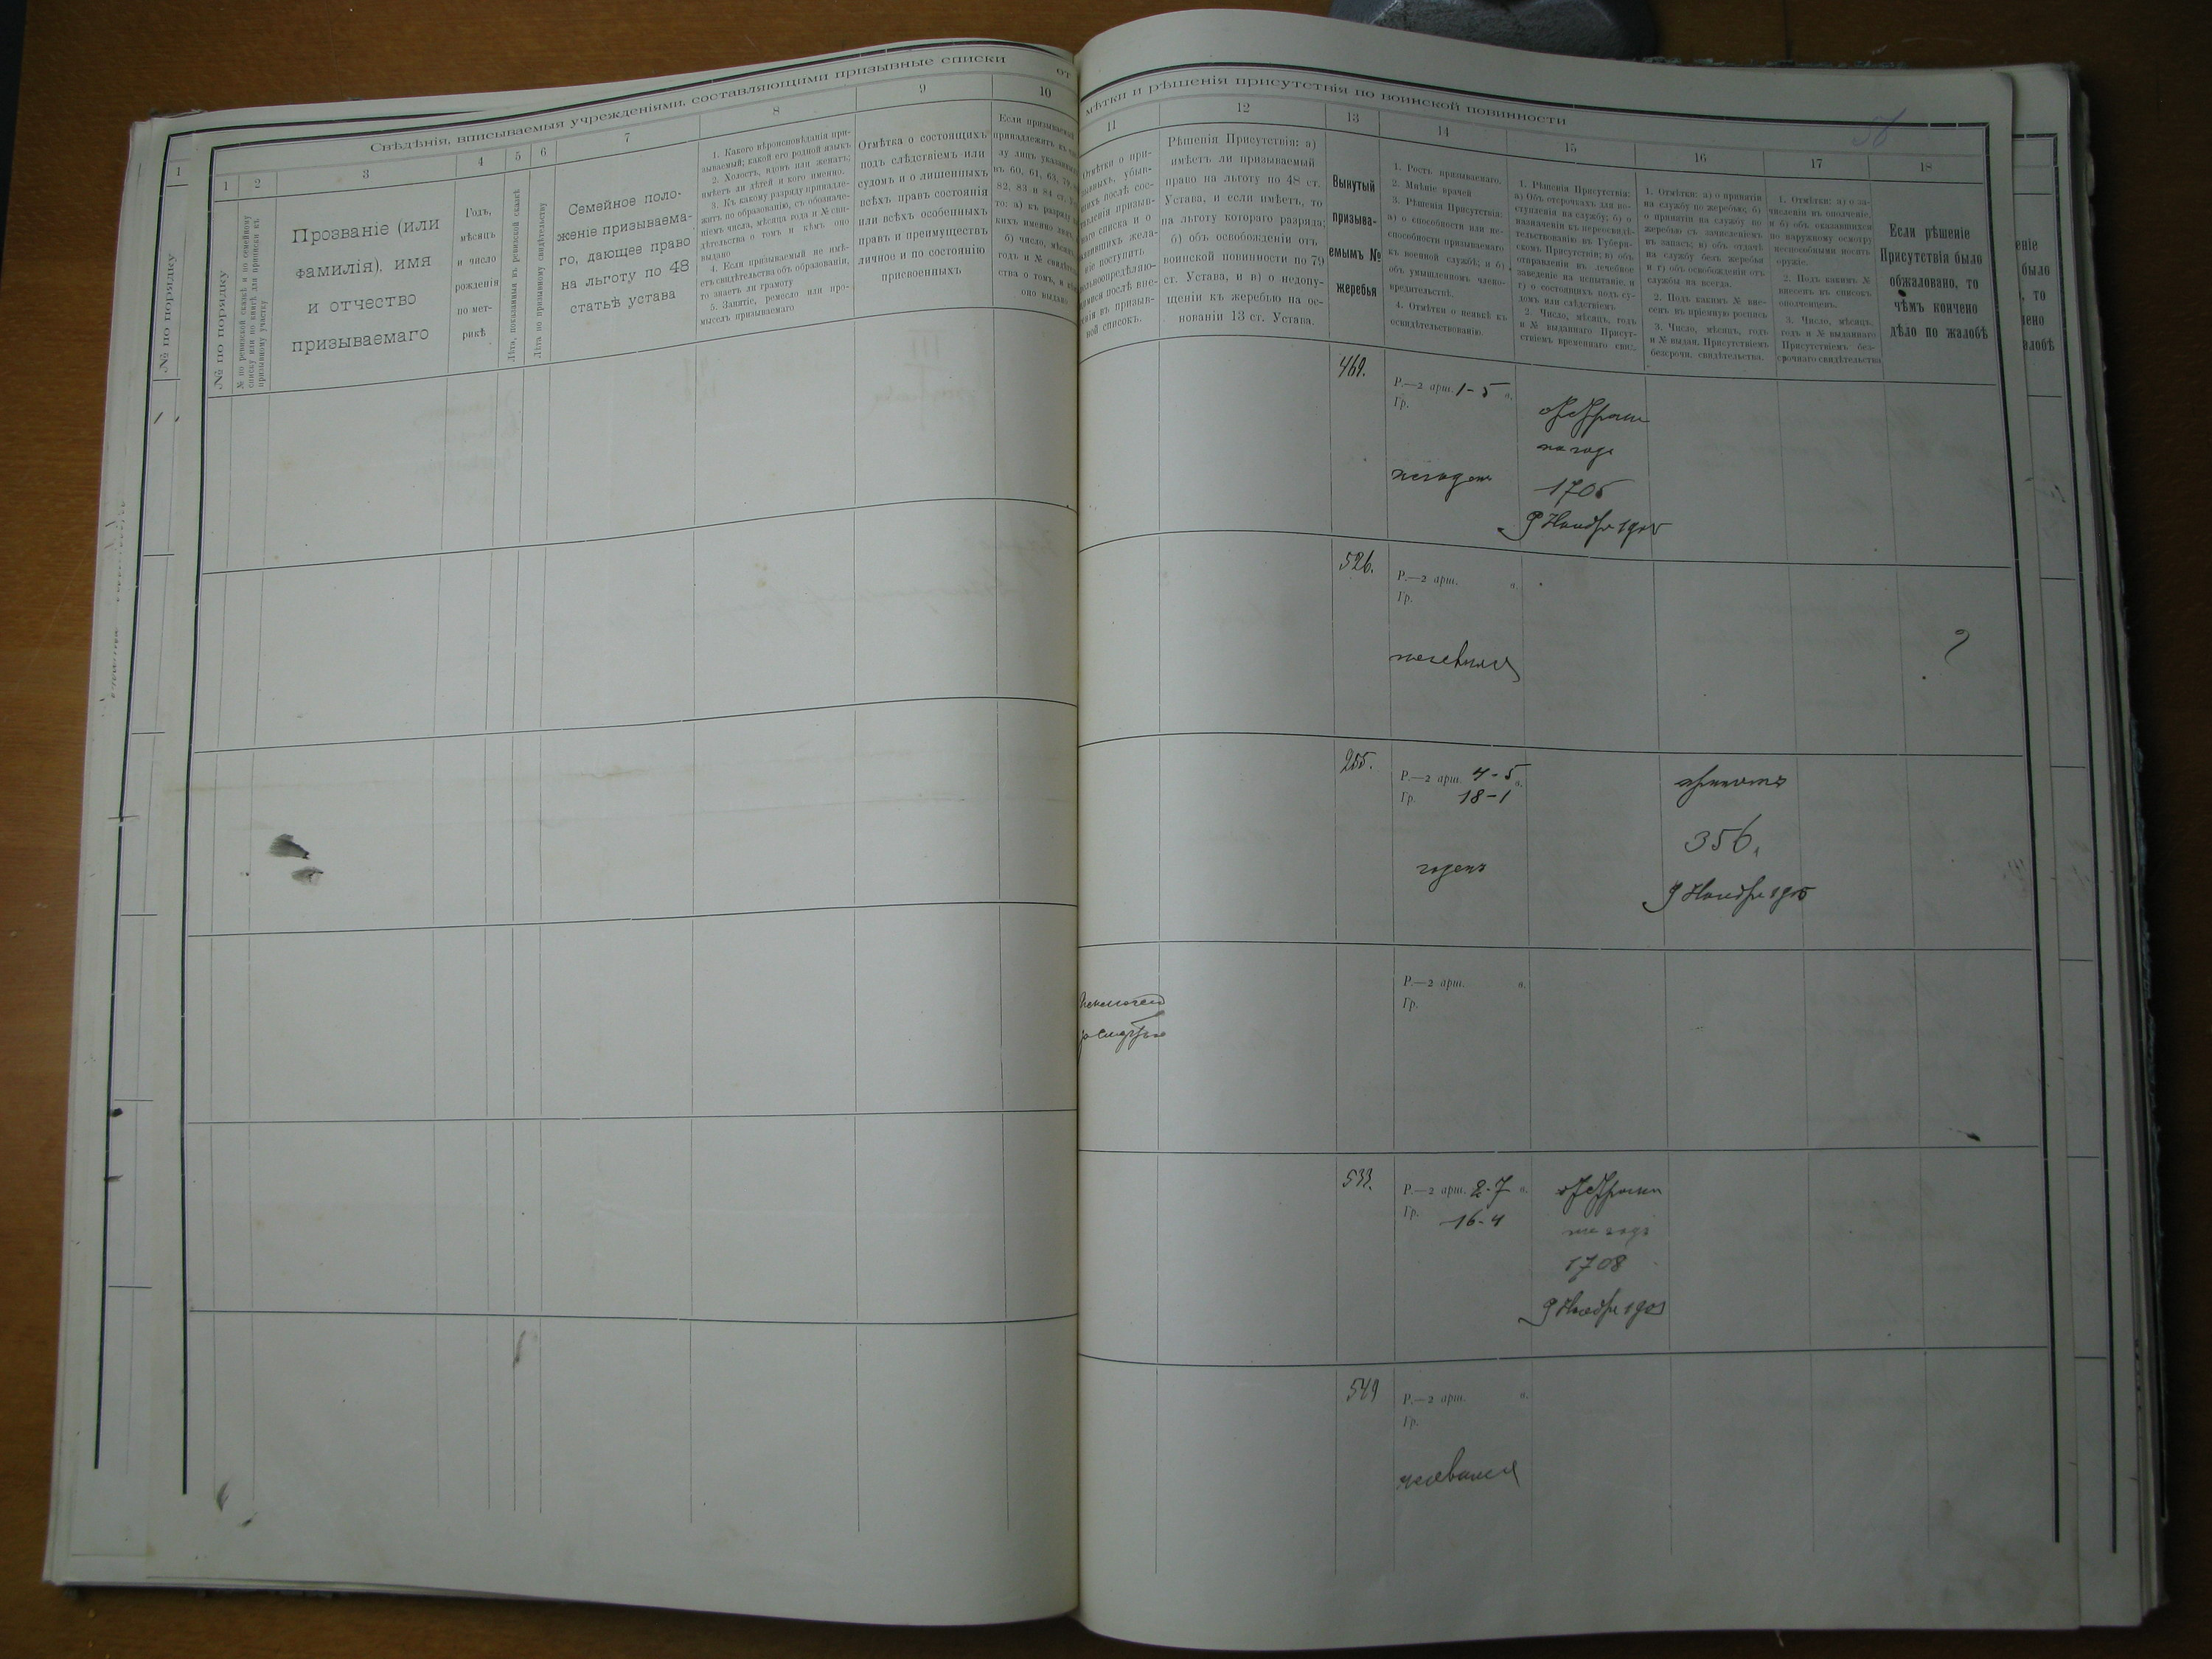 Свѣдѣнія, вписываемыя учрежденіями, составляющими призывные списки
от
1
1
2
3
4
5
6
7
8
9
10
№ по порядку
№ по порядку
Прозваніе (или
фамилія), имя
и отчество
призываемаго
Годъ,
мѣсяцъ
и число
рожденія
по мет-
рикѣ
Лѣта, показанныя въ ревизской сказкѣ
Лѣта по призывному свидѣтельству
Семейное поло-
женіе призываема-
го, дающее право
на льготу по 48
статьѣ устава
1. Какого вѣроисповѣданія при-
зываемый; какой его родной языкъ
2. Холостъ, вдовъ или женатъ;
имѣетъ ли дѣтей и кого именно.
3. Къ какому разряду принадле-
житъ по образованію, съ обозначе-
ніемъ числа, мѣсяца года и № сви-
дѣтельства о томъ и кѣмъ оно
выдано
4. Если призываемый не имѣ-
етъ свидѣтельства объ образованіи,
то знаетъ ли грамоту
5. Занятіе, ремесло или про-
мыселъ призываемаго
Отмѣтка о состоящихъ
подъ слѣдствіемъ или
судомъ и о лишенныхъ
всѣхъ правъ состоянія
или всѣхъ особенныхъ
правъ и преимуществъ
личное и по состоянію
присвоенныхъ
Если призываемый
принадлежитъ къ
оно выдано
мѣтки и рѣшенія присутствія по воинской повинности
56
11
12
13
14
15
16
17
18
Рѣшенія Присутствія: а)
имѣетъ ли призываемый
право на льготу по 48 ст.
Устава, и если имѣетъ, то
на льготу котораго разряда;
б) объ освобожденіи отъ
воинской повинности по 79
ст. Устава, и в) о недопу-
щеніи къ жеребью на ос-
нованіи 13 ст. Устава.
Вынутый
призыва-
емымъ №
жеребья
1. Ростъ призываемаго.
2. Мнѣніе врачей
3. Рѣшенія Присутствія:
а) о способности или не-
способности призываемаго
къ военной службѣ; и б)
объ умышленномъ члено-
вредительствѣ.
4. Отмѣтки о неявкѣ къ
освидѣтельствованію.
1. Рѣшенія Присутствія:
а) Объ отсрочкахъ для по-
ступленія на службу; б) о
назначеніи къ переосвидѣ-
тельствованію въ Губерн-
скомъ Присутствіи; в) объ
отправленіи въ лечебное
заведеніе на испытаніе, и
г) о состоящихъ подъ су-
домъ или слѣдствіемъ.
2. Число, мѣсяцъ, годъ
и № выданнаго Присут-
ствіемъ временнаго свид.
1. Отмѣтки: а) о принятіи
на службу по жеребью; б)
о принятіи на службу по
жеребью съ зачисленіемъ
въ запасъ; в) объ отдачѣ
на службу безъ жеребья
и г) объ освобожденіи отъ
службы на всегда.
2. Подъ какимъ № вне-
сенъ въ пріемную роспись
3. Число, мѣсяцъ, годъ
и № выдан. Присутствіемъ
безсрочн. свидѣтельства.
1. Отмѣтки: а) о за-
численіи въ ополченіе,
и б) объ оказавшихся
по наружному осмотру
неспособными носить
оружіе.
2. Подъ какимъ №
внесенъ въ списокъ
ополченцевъ.
3. Число, мѣсяцъ,
годъ и № выданнаго
Присутствіемъ без-
срочнаго свидѣтельства
Если рѣшеніе
Присутствія было
обжаловано, то
чѣмъ кончено
дѣло по жалобѣ
469.
Р.—2 арш. 1-5 в.
Гр.
негоденъ
отсрочка
на годъ
1705
9 Ноября 1905
526.
Р.—2 арш. в.
Гр.
неявился
255.
Р.—2 арш. 4-5 в.
Гр. 18-1
годенъ
принятъ
356.
9 Ноября 1905
Исключенъ
за смертью
Р.—2 арш. в.
Гр.
533.
Р.—2 арш. 2-7 в.
Гр. 16-4
отсрочка
на годъ
1708
9 Ноября 1905
549
Р.—2 арш. в.
Гр.
неявился